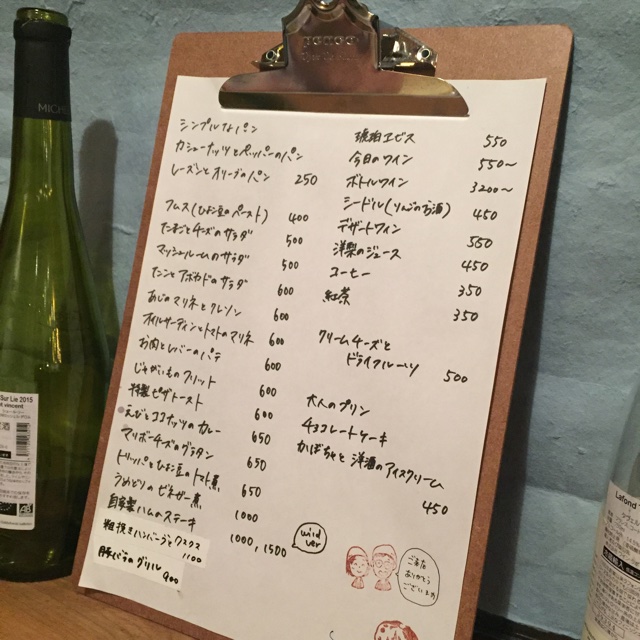 シンプルなパン
カシューナッツとペッパーのパン
レーズンとオリーブのパン 250
フムス(ひよこ豆のペースト) 400
たまごとチーズのサラダ 500
マッシュルームのサラダ 500
たことアボカドのサラダ 600
あじのマリネとクレソン 600
オイルサーディンとトマトのマリネ 600
お肉とレバーのパテ 600
じゃがいものフリット 600
特製ピザトースト 600
えびとココナッツのカレー 650
マリボーチーズのグラタン 650
トリッパとひよこ豆のトマト煮 650
うめどりのビネガー煮 1000
自家製ハムのステーキ 1000, 1500
wild ver
粗挽きハンバーグとクスクス 1100
豚バラのグリル 900
琥珀ヱビス 550
今日のワイン 550〜
ボトルワイン 3200〜
シードル(りんごのお酒) 450
デザートワイン 550
洋梨のジュース 450
コーヒー 350
紅茶 350
クリームチーズと
ドライフルーツ 500
大人のプリン
チョコレートケーキ
かぼちゃと洋酒のアイスクリーム
450
ご来店
ありがとう
ございます
penco
MICHE
Sur Lie 2015
t vincent
Lafond